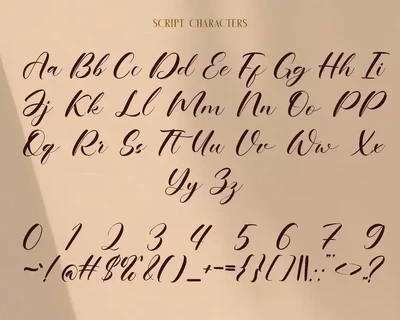 SCRIPT CHARACTERS
Aa Bb Cc Dd Ee Ff Gg Hh Ii
Jj Kk Ll Mm Nn Oo PP
Qq Rr Ss Tt Uu Vv Ww Xx
Yy Zz
0 1 2 3 4 5 6 7 9
~!@#$%&()_+-={}[]|\:;"'<>,.?